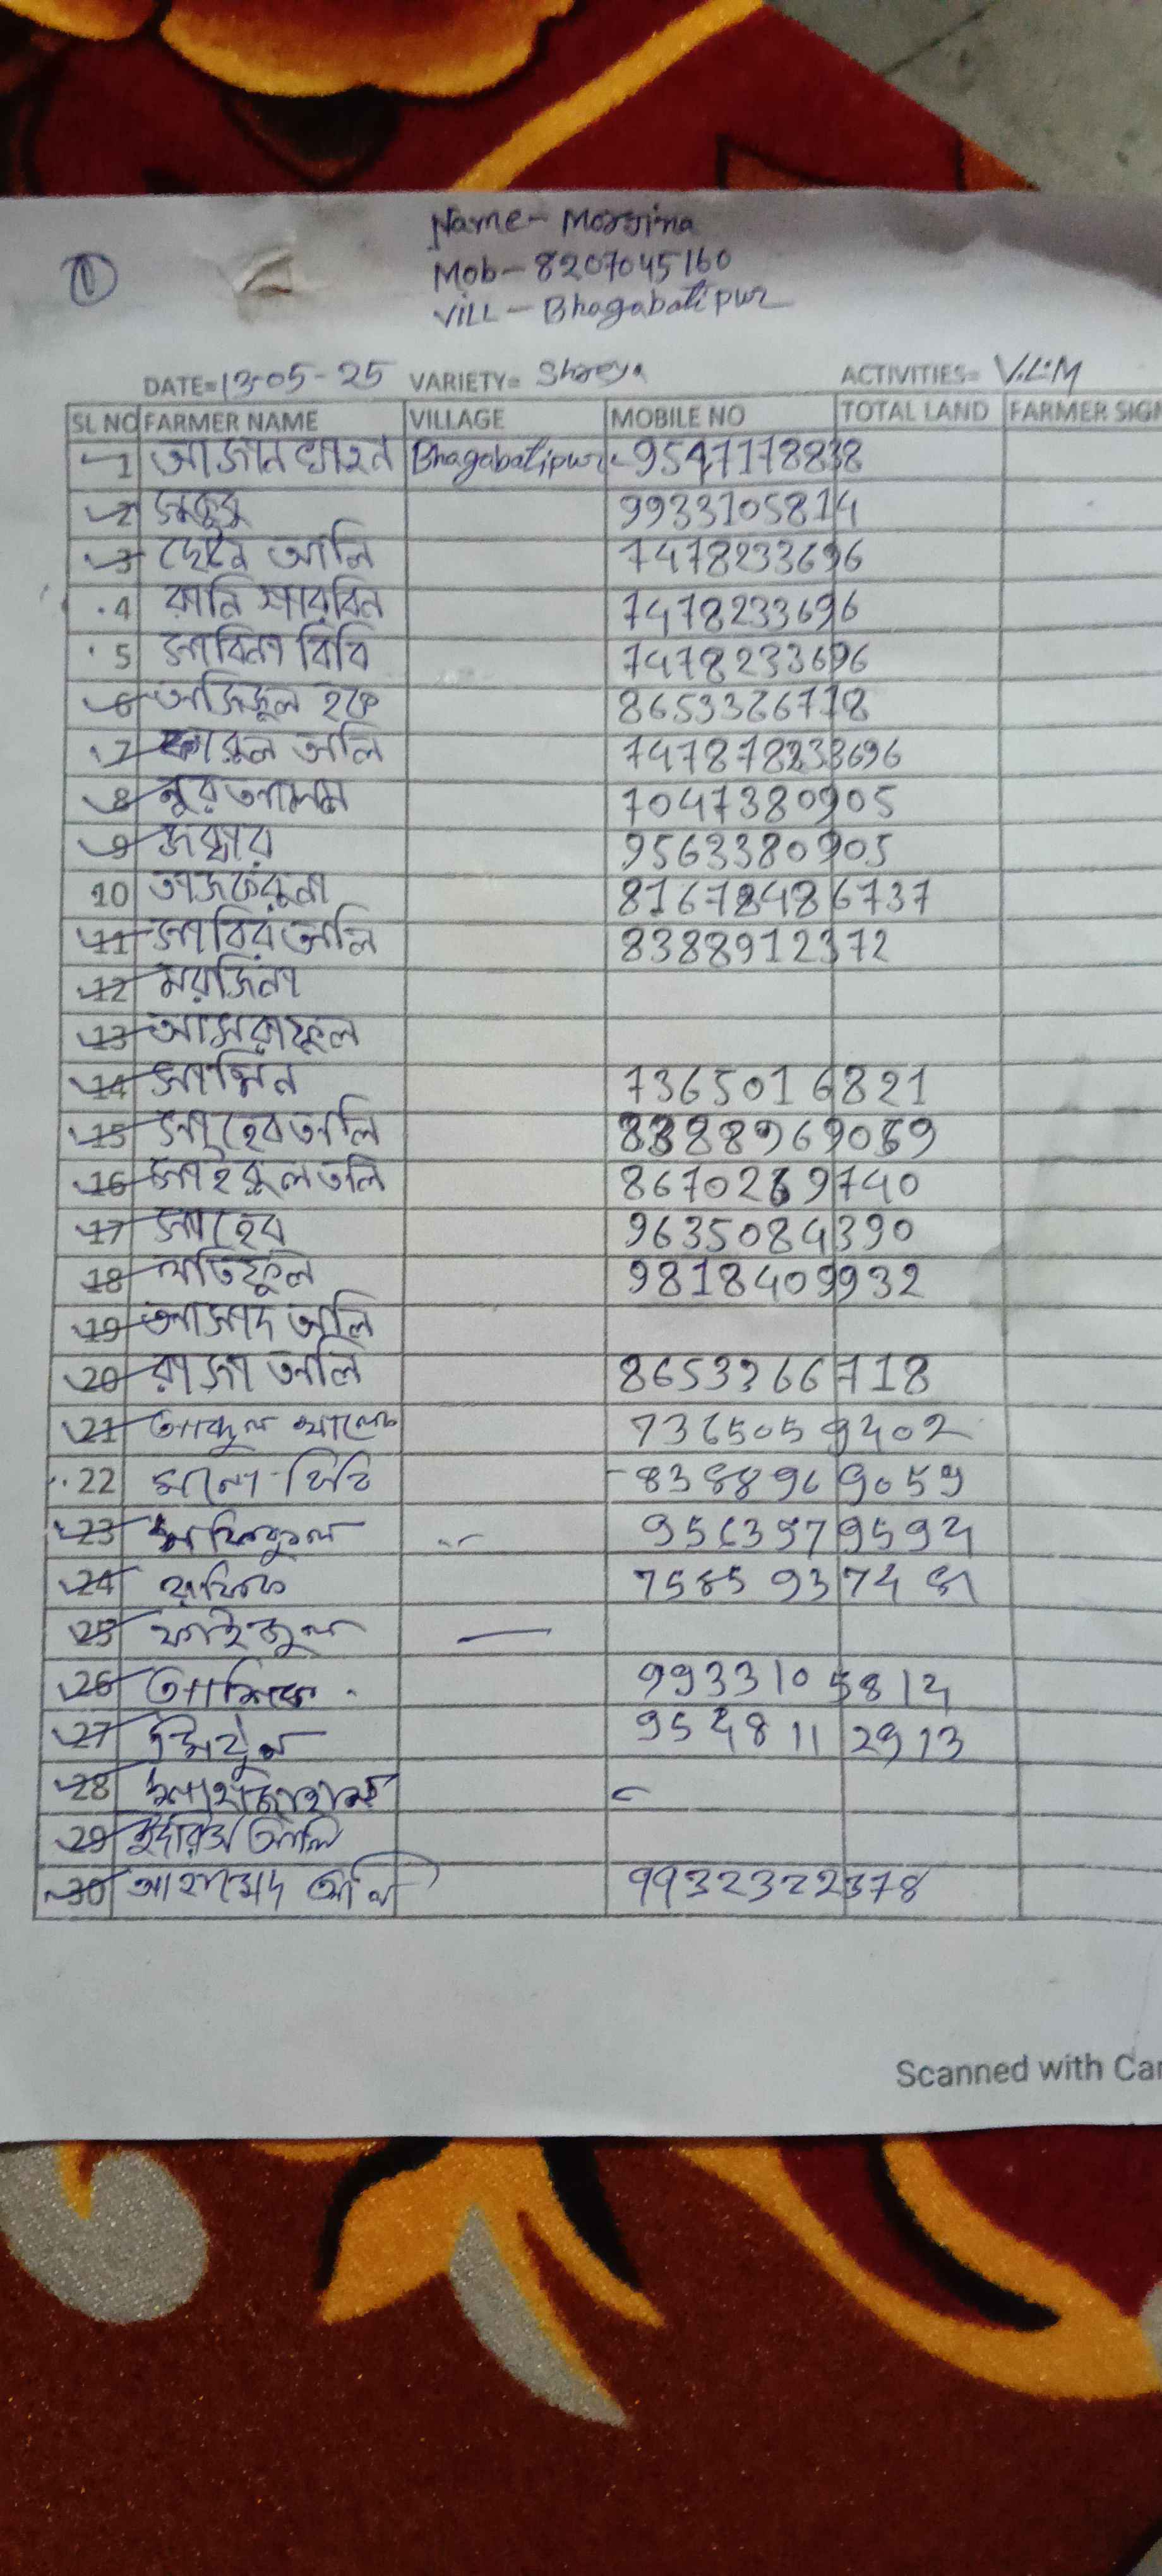 1
Name- Morjina
Mob- 8207045160
VILL- Bhagabatipur
DATE=13-05-25 VARIETY= Shreya ACTIVITIES= V.L.M
SL NO FARMER NAME VILLAGE MOBILE NO TOTAL LAND FARMER SIGN
1 Bhagabatipur 9547178838
2 9933105814
3 আলি 7478233696
4 রানি পারবিন 7478233696
5 সাবিনা বিবি 7478233696
6 আজিজুল হক 8653366718
7 আলি 747878233696
8 নুর আলম 7047380905
9 জব্বার 9563380905
10 8167848 6737
11 সাবির আলি 8388912372
12 মরজিনা
13 আসরাফুল
14 7365016821
15 সাহেব আলি 8388969059
16 8670289740
17 সাহেব 9635084390
18 লতিফুল 9818409932
19 আসাদ আলি
20 রাজা আলি 8653366718
21 আব্দুল খালেক 7365059402
22 বিবি 8388969059
23 9563979594
24 রফিক
25 ফাইজুল
26 আশিক 9933105814
27 মিঠুন 9548112913
28
29 ইদ্রিস আলি
30 আহাম্মেদ আলি 9932322378
Scanned with Cam